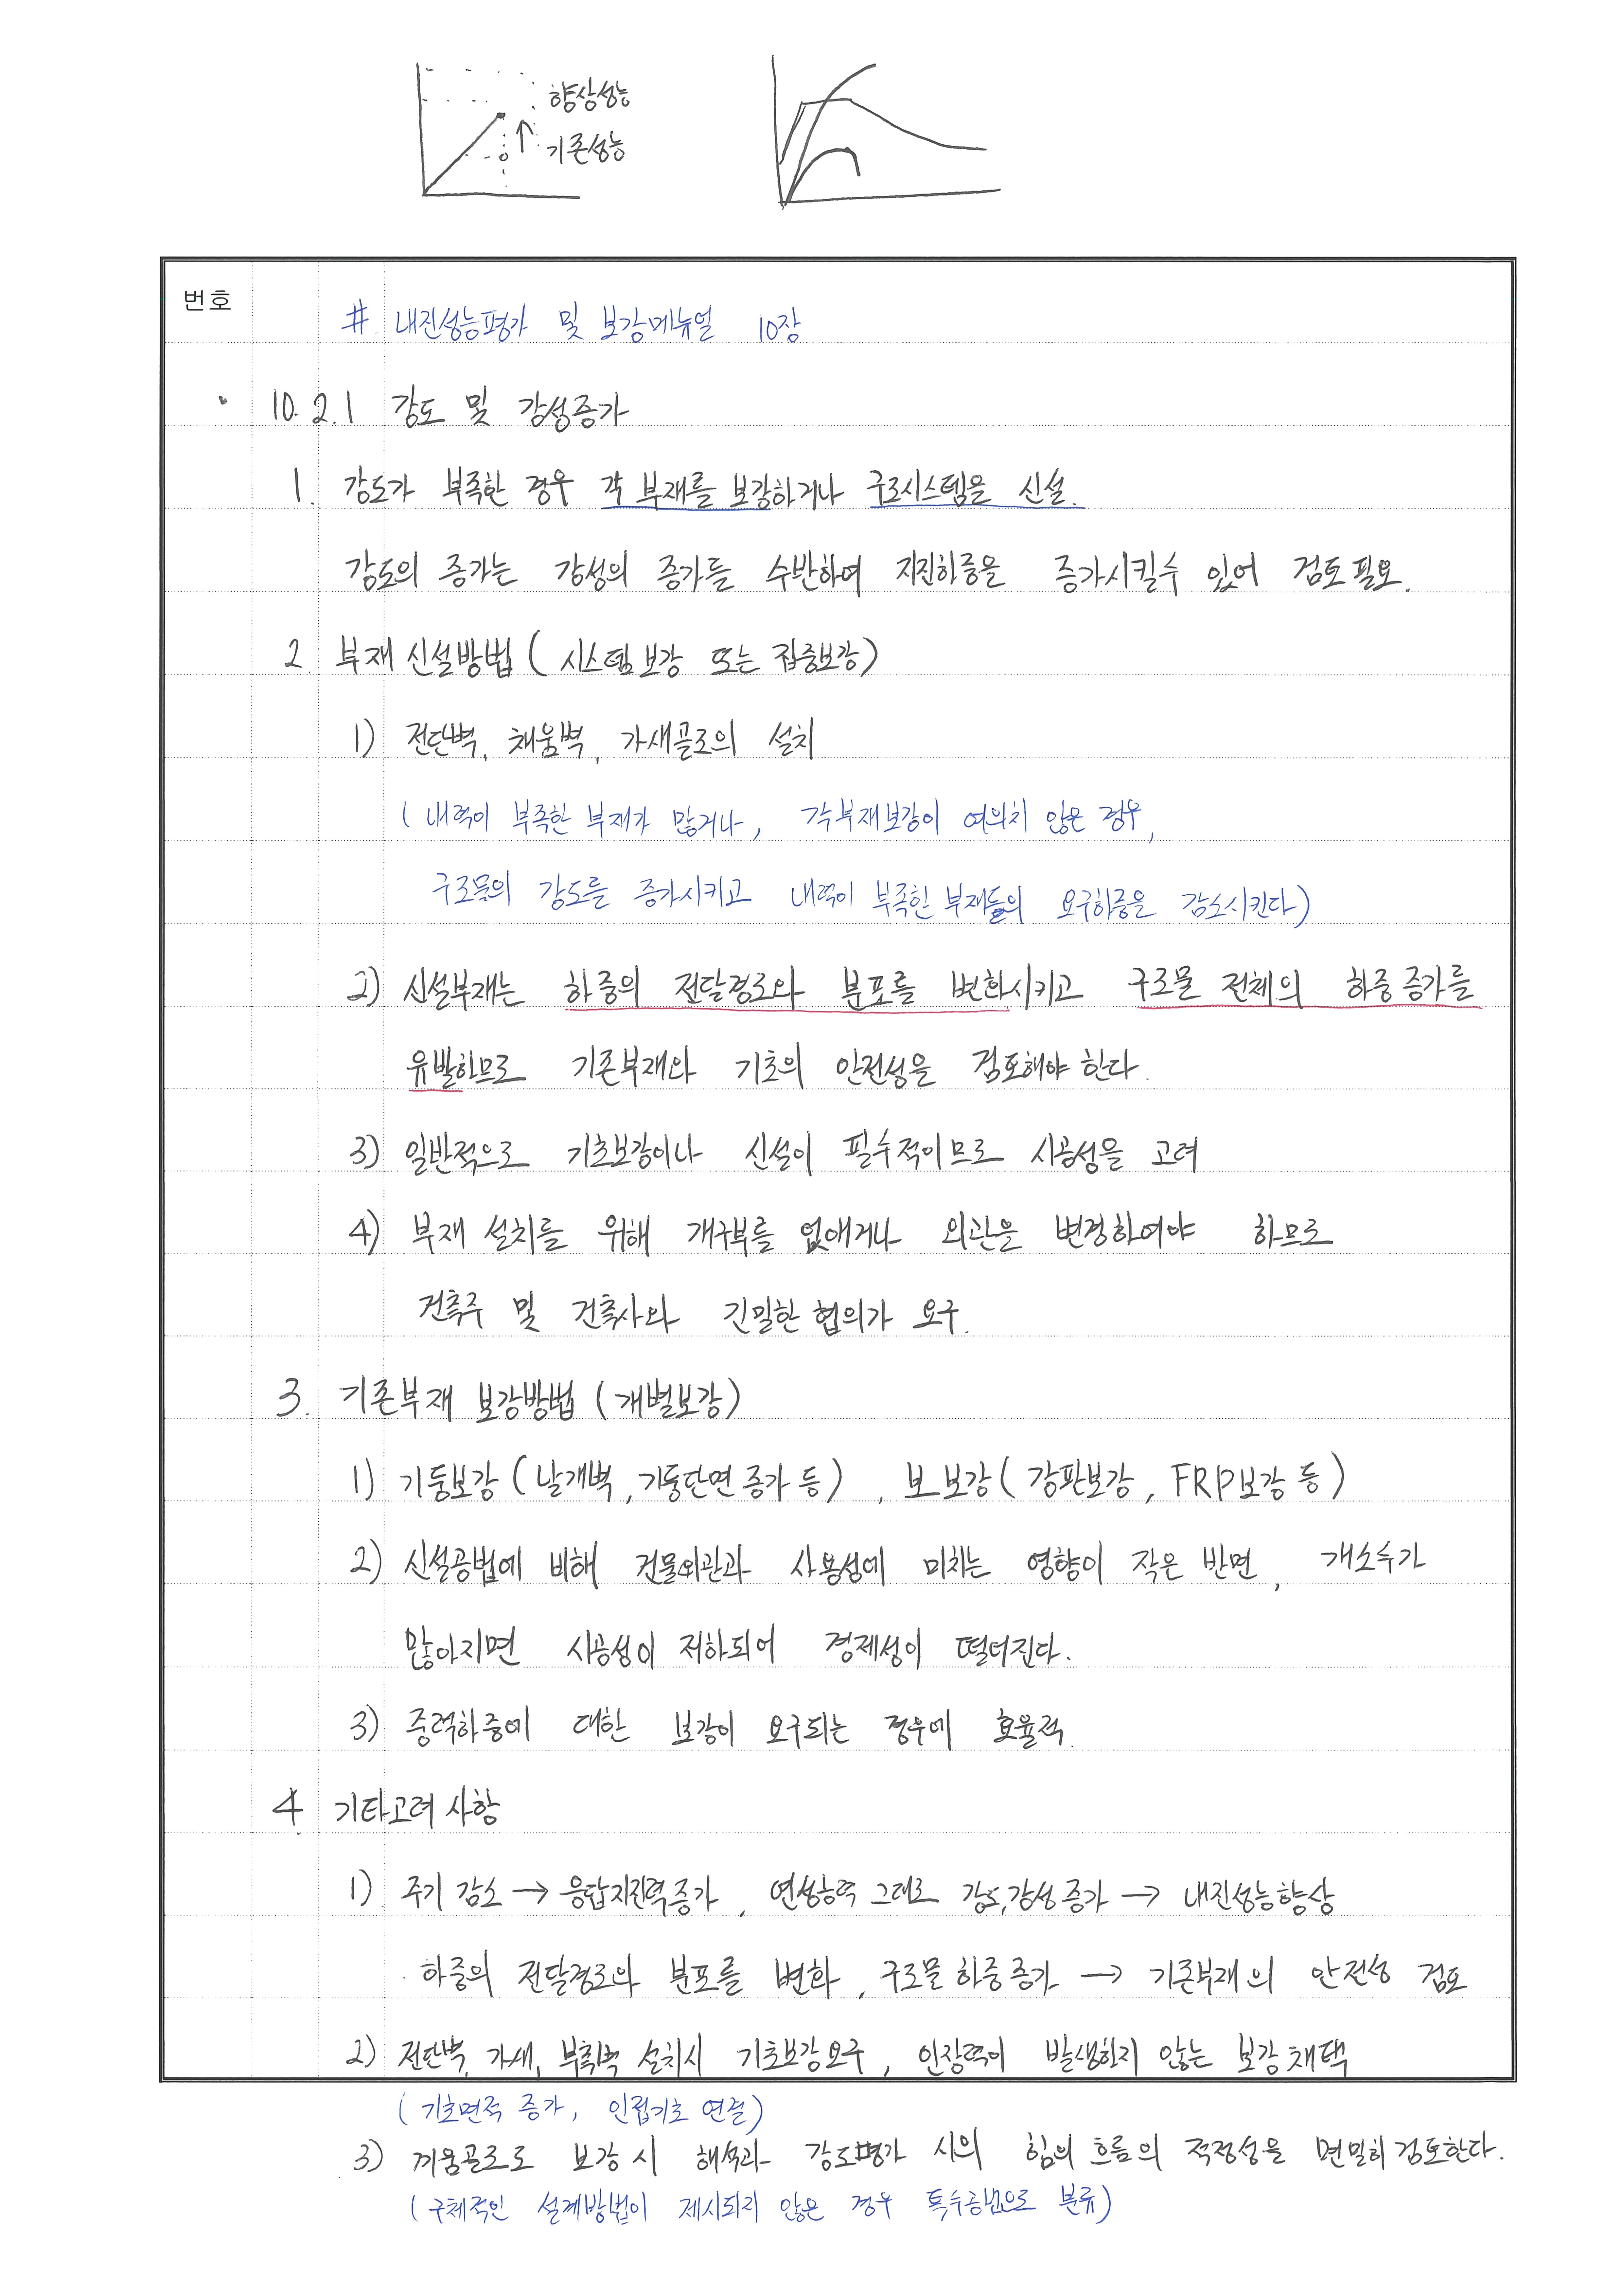 향상성능
기존성능
번호
# 내진성능평가 및 보강메뉴얼 10장
10.2.1 강도 및 강성증가
1. 강도가 부족한 경우 각 부재를 보강하거나 구조시스템을 신설.
강도의 증가는 강성의 증가를 수반하여 지진하중을 증가시킬수 있어 검토필요.
2. 부재 신설방법 ( 시스템보강 또는 집중보강)
1) 전단벽, 채움벽, 가새골조의 설치
( 내력이 부족한 부재가 많거나, 각부재보강이 여의치 않은 경우,
구조물의 강도를 증가시키고 내력이 부족한 부재들의 요구하중을 감소시킨다)
2) 신설부재는 하중의 전달경로와 분포를 변화시키고 구조물 전체의 하중증가를
유발하므로 기존부재와 기초의 안전성을 검토해야 한다.
3) 일반적으로 기초보강이나 신설이 필수적이므로 시공성을 고려
4) 부재 설치를 위해 개구부를 없애거나 외관을 변경하여야 하므로
건축주 및 건축사와 긴밀한 협의가 요구.
3. 기존부재 보강방법 (개별보강)
1) 기둥보강 (날개벽, 기둥단면증가 등) , 보 보강 ( 강판보강, FRP보강 등)
2) 신설공법에 비해 건물외관과 사용성에 미치는 영향이 작은 반면, 개소수가
많아지면 시공성이 저하되어 경제성이 떨더진다.
3) 중력하중에 대한 보강이 요구되는 경우에 효율적.
4. 기타고려 사항
1) 주기 감소 → 응답지진력증가, 연성능력 그대로 강도,강성 증가 → 내진성능향상
하중의 전달경로와 분포를 변화, 구조물 하중증가 → 기존부재의 안전성 검토
2) 전단벽, 가새, 부축벽 설치시 기초보강요구, 인장력이 발생하지 않는 보강채택
( 기초면적 증가, 인접기초 연결)
3) 끼움골조로 보강 시 해석과 강도평가 시의 힘의 흐름의 적정성을 면밀히 검토한다.
( 구체적인 설계방법이 제시되지 않은 경우 특수공법으로 분류)